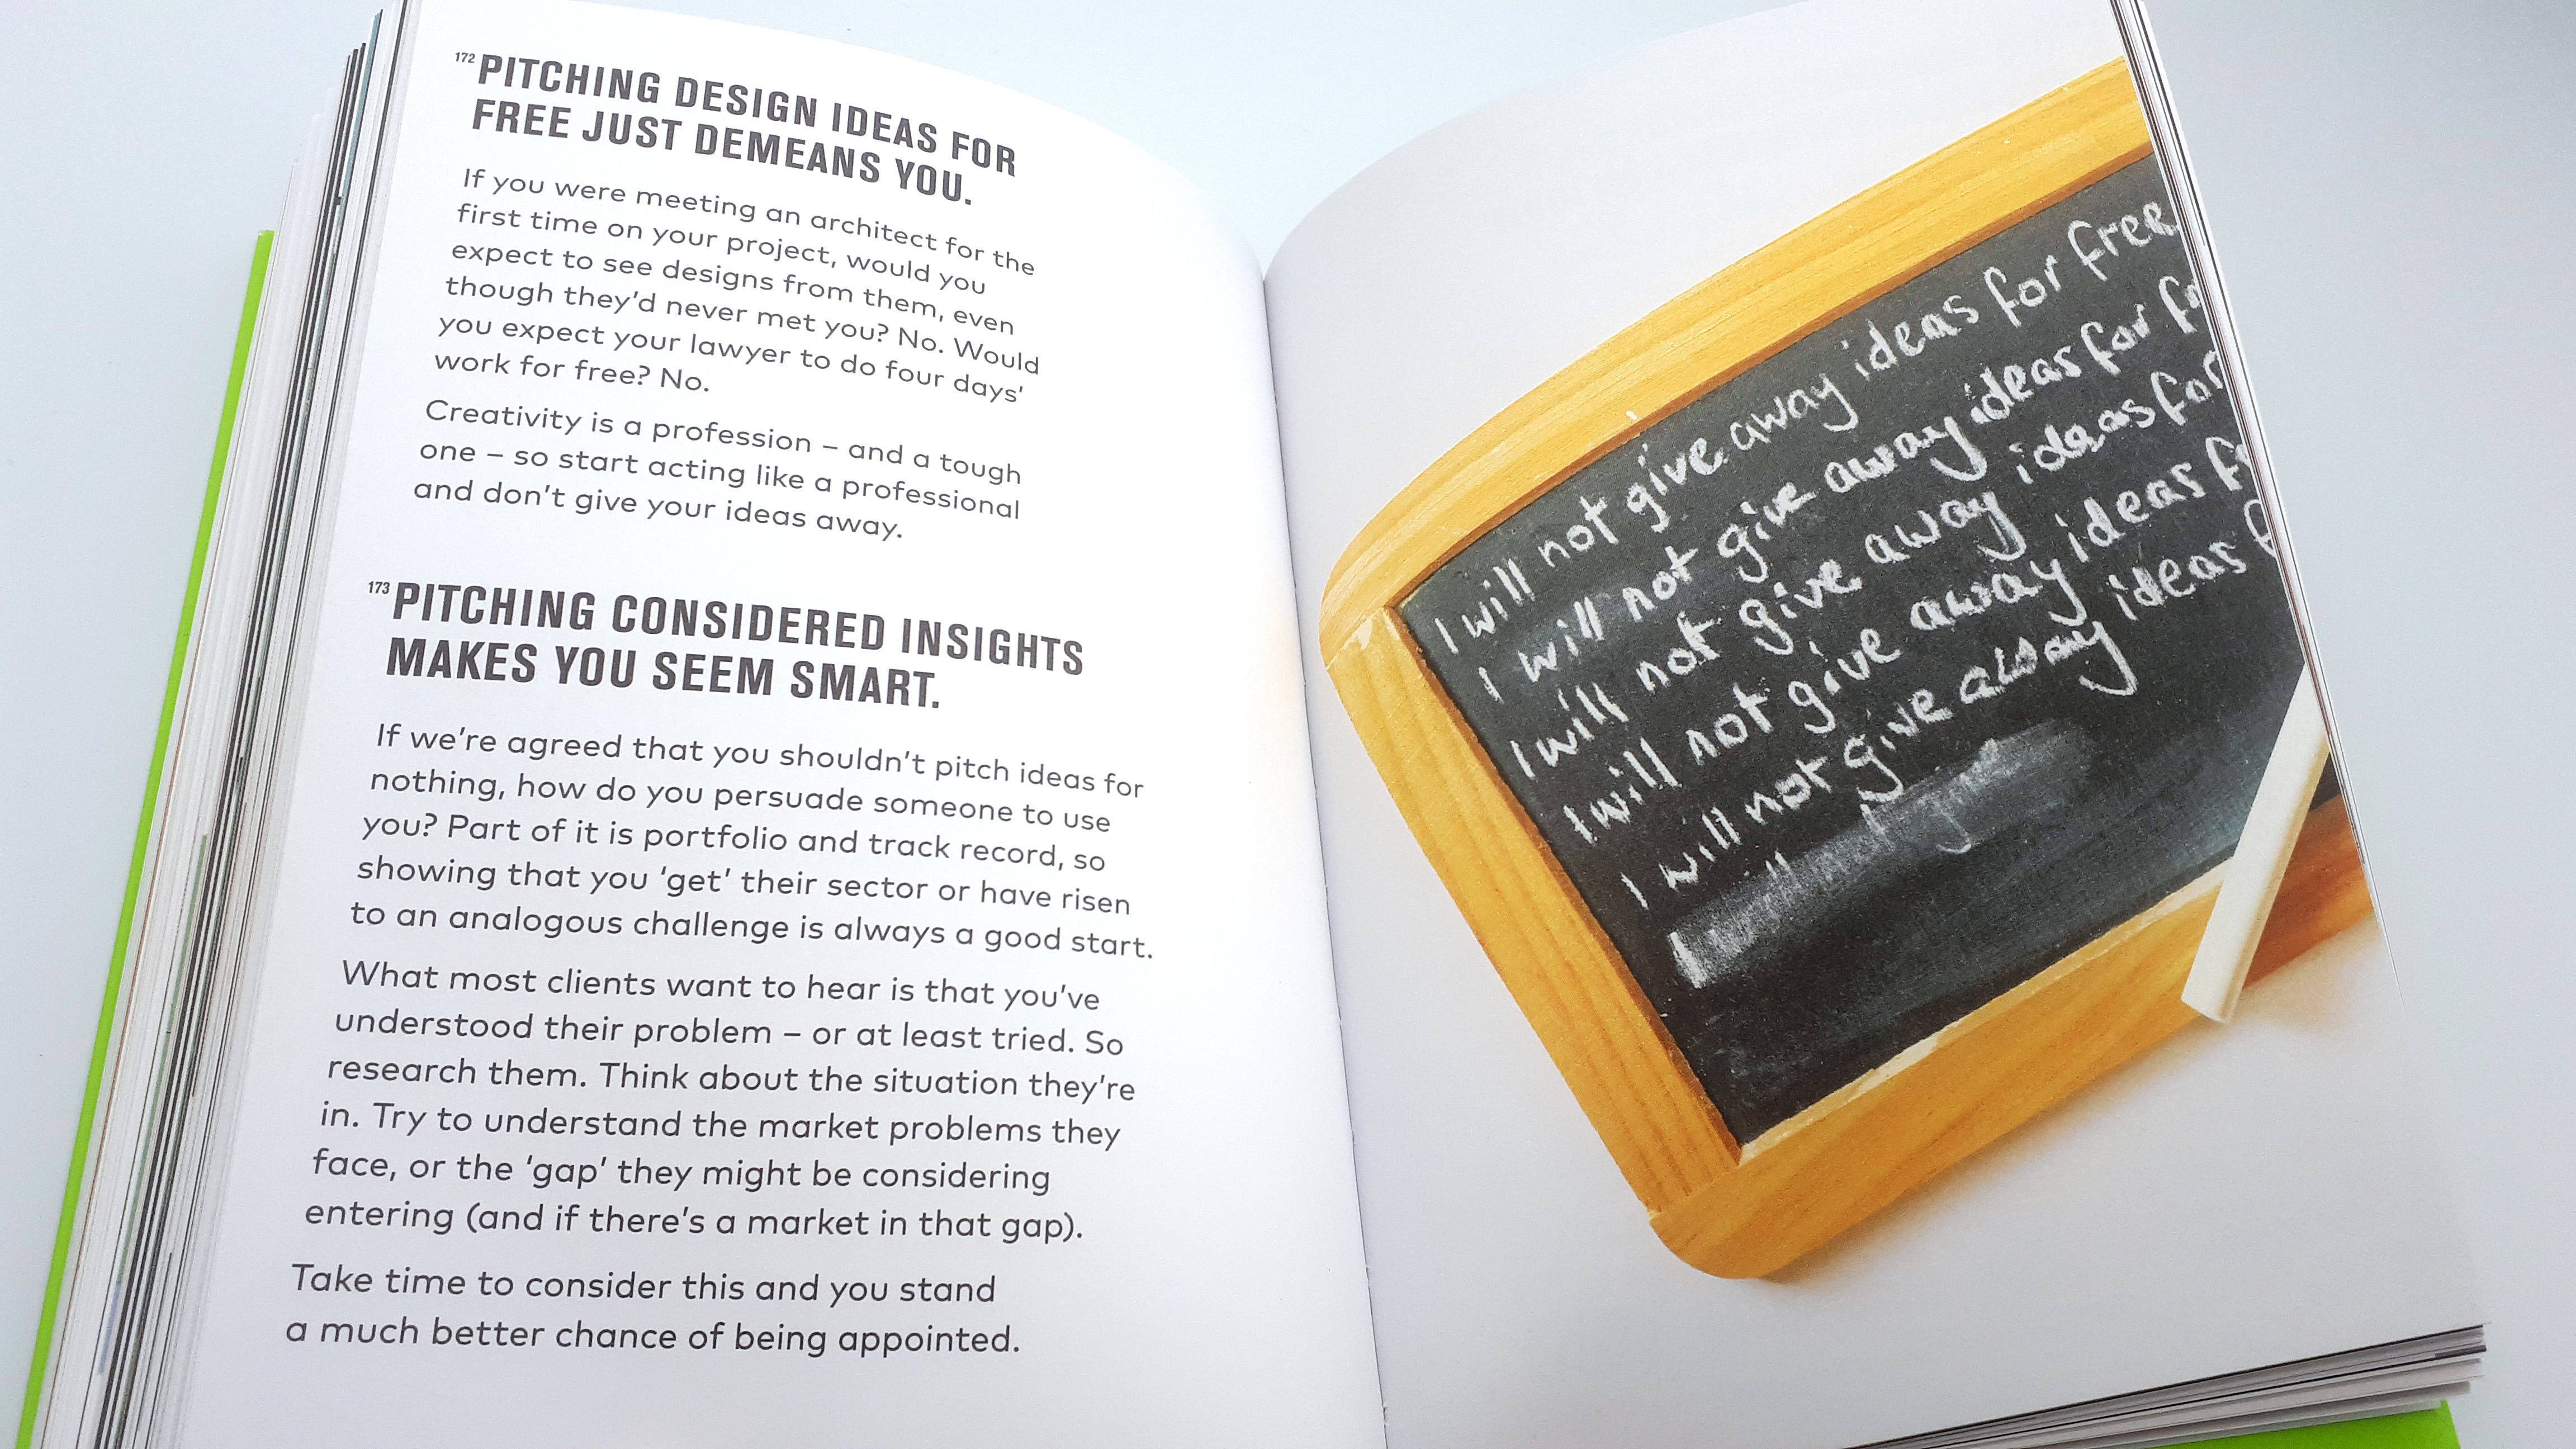 172 PITCHING DESIGN IDEAS FOR
FREE JUST DEMEANS YOU.
If you were meeting an architect for the
first time on your project, would you
expect to see designs from them, even
though they’d never met you? No. Would
you expect your lawyer to do four days’
work for free? No.
Creativity is a profession – and a tough
one – so start acting like a professional
and don’t give your ideas away.
173 PITCHING CONSIDERED INSIGHTS
MAKES YOU SEEM SMART.
If we’re agreed that you shouldn’t pitch ideas for
nothing, how do you persuade someone to use
you? Part of it is portfolio and track record, so
showing that you ‘get’ their sector or have risen
to an analogous challenge is always a good start.
What most clients want to hear is that you’ve
understood their problem – or at least tried. So
research them. Think about the situation they’re
in. Try to understand the market problems they
face, or the ‘gap’ they might be considering
entering (and if there’s a market in that gap).
Take time to consider this and you stand
a much better chance of being appointed.
I will not give away ideas for free
I will not give away ideas for
I will not give away ideas for
I will not give away ideas
I will not give away ideas
I will